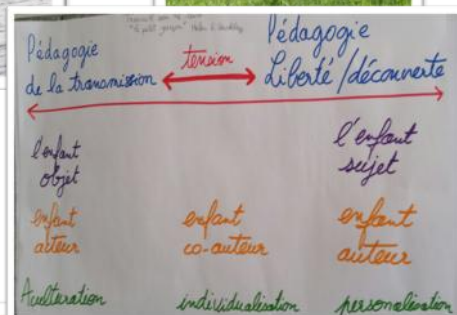 "Le petit garçon" Helen E. Buckley
Pédagogie
de la transmission
tension
Pédagogie
Liberté/découverte
l'enfant
objet
l'enfant
sujet
enfant
acteur
enfant
co-auteur
enfant
auteur
Aculturation
individualisation
personalisation